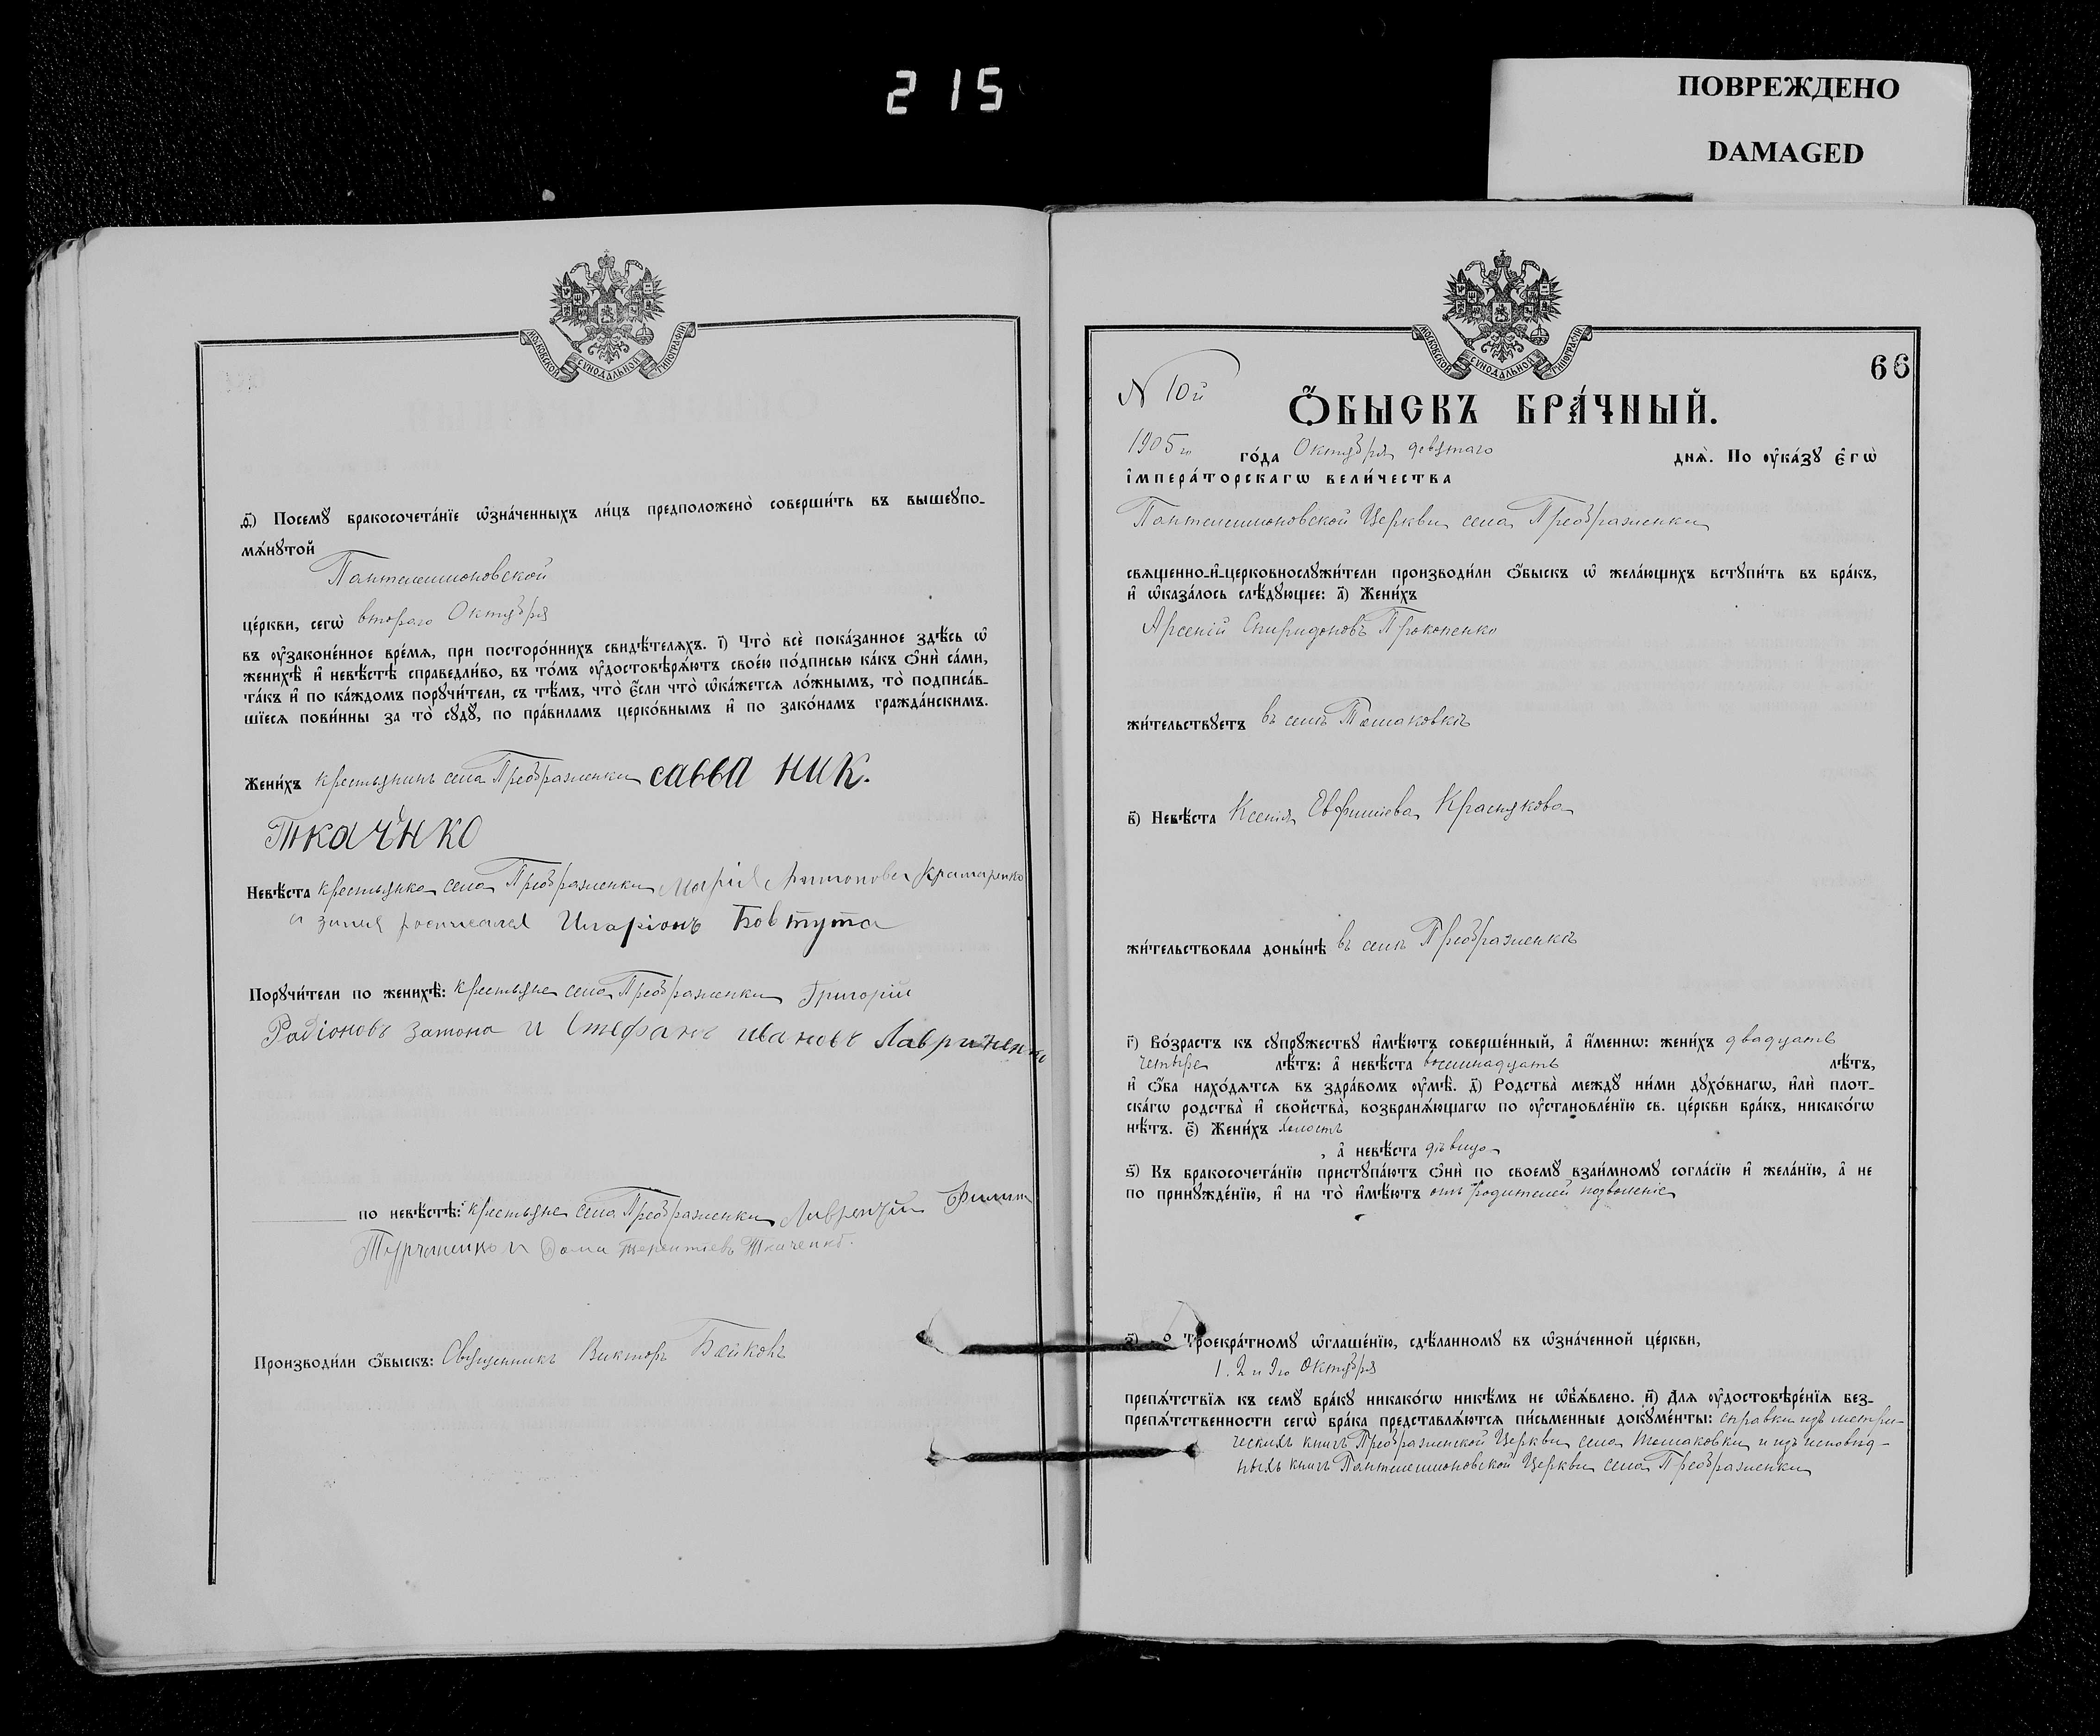 215
ПОВРЕЖДЕНО
DAMAGED
МОСКОВСКОЙ СѴНОДАЛЬНОЙ ТИПОГРАФІИ
ѳ҃) Посемꙋ бракосочета́нїе ѡ҆зна́ченныхъ ли́цъ предположено̀ соверши́ть въ вышеꙋпо-
мѧ́нꙋтой
Пантелеимоновской
це́ркви, сегѡ̀ втораго Октября
въ ᲂу҆зако́ненное вре́мѧ, при посторо́ннихъ свидѣ́телѧхъ. і҃) Что̀ всѐ пока́занное здѣ́сь ѡ҆
женихѣ̀ и҆ невѣ́стѣ справедли́во, въ то́мъ ᲂу҆достовѣрѧ́ютъ свое́ю по́дписью ка́къ ѻ҆нѝ са́ми,
та́къ и҆ по ка́ждомъ порꙋчи́тели, съ тѣ́мъ, что̀ є҆́сли что̀ ѡ҆ка́жетсѧ ло́жнымъ, то̀ подписа́в-
шїесѧ пови́нны за то̀ сꙋдꙋ̀, по пра́виламъ церко́внымъ и҆ по зако́намъ гражда́нскимъ.
Жени́хъ крестьянинъ села Преображенки савва ник.
Ткачнко
Невѣ́ста крестьянка села Преображенки Марія Антонова Крамаренко
а зиния росписался Иларіонъ Бовтута
Порꙋчи́тели по женихѣ̀: крестьяне села Преображенки Григорій
Радіоновъ Затона и Стефанъ ивановъ Лавриненко
по невѣ́стѣ: крестьяне села Преображенки Лаврентій Филип
Турченко и Фома терентіевъ Ткаченко.
Производи́ли ѻ҆́быскъ: Священникъ Викторъ Байковъ
МОСКОВСКОЙ СѴНОДАЛЬНОЙ ТИПОГРАФІИ
66
N 10й
Ѻ҆́БЫСКЪ БРА́ЧНЫЙ.
1905го го́да Октября девятаго днѧ̀. По ᲂу҆ка́зꙋ є҆гѡ̀
і҆мпера́торскагѡ вели́чества
Пантелеимоновской Церкви села Преображенки
свѧще́нно-и҆-церковнослꙋжи́тели производи́ли ѻ҆́быскъ ѡ҆ жела́ющихъ встꙋпи́ть въ бра́къ,
и҆ ѡ҆каза́лось слѣ́дꙋющее: а҃) Жени́хъ
Арсеній Спиридоновъ Прокопенко
жи́тельствꙋетъ въ селѣ Томаковкѣ
в҃) Невѣ́ста Ксенія Евфиміева Краснякова
жи́тельствовала доны́нѣ въ селѣ Преображенкѣ
г҃) Во́зрастъ къ сꙋпрꙋ́жествꙋ и҆мѣ́ютъ соверше́нный, а҆ и҆́менно: жени́хъ двадцать
четыре лѣ́тъ: а҆ невѣ́ста восемнадцать лѣ́тъ,
и҆ ѻ҆́ба нахо́дѧтсѧ въ здра́вомъ ᲂу҆мѣ̀. д҃) Родства̀ междꙋ ни́ми дꙋхо́внагѡ, и҆лѝ плот-
ска́гѡ родства̀ и҆ свойства̀, возбранѧ́ющагѡ по ᲂу҆становле́нїю св. це́ркви бра́къ, никако́гѡ
нѣ́тъ. є҃) Жени́хъ холостъ
, а҆ невѣ́ста дѣвица
ѕ҃) Къ бракосочета́нїю пристꙋпа́ютъ ѻ҆нѝ по своемꙋ̀ взаи́мномꙋ согла́сїю и҆ жела́нїю, а҆ не
по принꙋжде́нїю, и҆ на то̀ и҆мѣ́ютъ отъ родителей позволеніе
з҃) По Троекра́тномꙋ ѡ҆глаше́нїю, сдѣ́ланномꙋ въ ѡ҆зна́ченной це́ркви,
1. 2 и 9го Октября
препѧ́тствїѧ къ семꙋ̀ бра́кꙋ никако́гѡ никѣ́мъ не ѡ҆б̾ѧ́влено. и҃) Длѧ ᲂу҆достовѣре́нїѧ без-
препѧ́тственности сегѡ̀ бра́ка представлѧ́ютсѧ пи́сьменные докꙋме́нты: справки изъ метри-
ческихъ книгъ Преображенской Церкви села Томаковки и изъ исповѣд-
ныхъ книгъ Пантелеимоновской Церкви села Преображенки